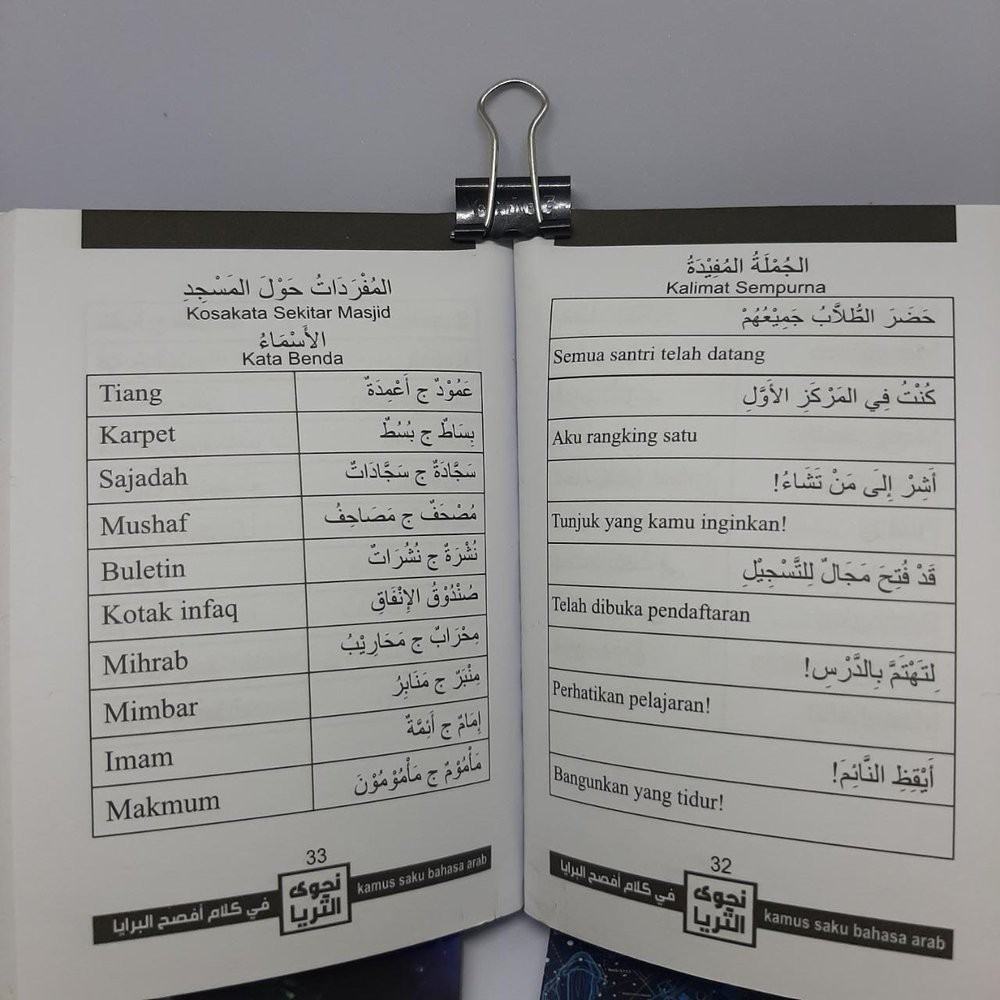 الجُمْلَةُ المُفِيْدَةُ
Kalimat Sempurna
حَضَرَ الطُّلَّابُ جَمِيْعُهُمْ
Semua santri telah datang
كُنْتُ فِي المَرْكَزِ الأَوَّلِ
Aku rangking satu
أَشِرْ إِلَى مَنْ تَشَاءُ!
Tunjuk yang kamu inginkan!
قَدْ فُتِحَ مَجَالٌ لِلتَّسْجِيْلِ
Telah dibuka pendaftaran
لِتَهْتَمَّ بِالدَّرْسِ!
Perhatikan pelajaran!
أَيْقِظِ النَّائِمَ!
Bangunkan yang tidur!
32
في كلام أفصح البرايا
نجوى
الثريا
kamus saku bahasa arab
المُفْرَدَاتُ حَوْلَ المَسْجِدِ
Kosakata Sekitar Masjid
الأَسْمَاءُ
Kata Benda
عَمُوْدٌ ج أَعْمِدَةٌ Tiang
بِسَاطٌ ج بُسُطٌ Karpet
سَجَّادَةٌ ج سَجَّادَاتٌ Sajadah
مُصْحَفٌ ج مَصَاحِفُ Mushaf
نُشْرَةٌ ج نُشُرَاتٌ Buletin
صُنْدُوْقُ الإِنْفَاقِ Kotak infaq
مِحْرَابٌ ج مَحَارِيْبُ Mihrab
مِنْبَرٌ ج مَنَابِرُ Mimbar
إِمَامٌ ج أَئِمَّةٌ Imam
مَأْمُوْمٌ ج مَأْمُوْمُوْنَ Makmum
33
في كلام أفصح البرايا
نجوى
الثريا
kamus saku bahasa arab